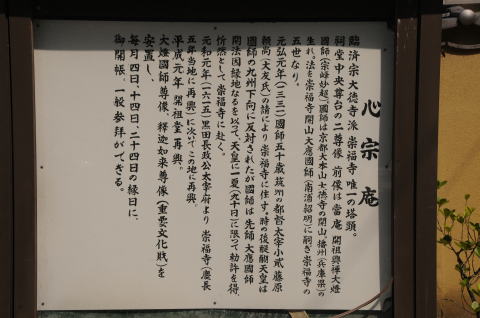 心宗庵
臨済宗大徳寺派 崇福寺 唯一の塔頭。
祠堂中央尊台の二尊像 前像は當庵 開祖興禅大燈
國師(宗峰妙超)國師は京都大本山大徳寺の開山。播州(兵庫県)の
生れ。法を崇福寺開山大應國師(南浦紹明)に嗣ぎ崇福寺の
五世なり。
元弘元年(一三三一)國師五十歳 筑州の都督太宰小貳藤原
頼尚(大友氏)の請により崇福寺に住す。時の後醍醐天皇は
國師の九州下向に反対されたが國師は先師大應國師
開法因縁地なるを以て、天皇に一夏(九十日)に限って勅許を得、
忻然として崇福寺に赴く。
元和元年(一六一五)黒田長政公太宰府より 崇福寺(慶長
五年当地に再興)に次いでこの地に再興。
平成元年 開祖堂再興。
大燈國師尊像 釋迦如来尊像(重要文化財)を
安置し、
毎月四日、十四日、二十四日の縁日に、
御開帳、一般参拝ができる。